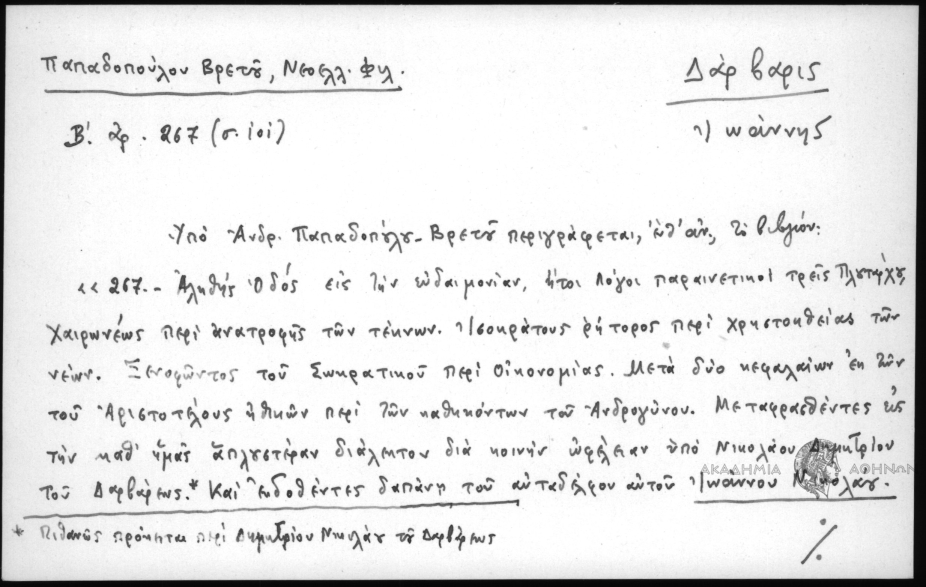 Παπαδοπούλου Βρετοῦ, Νεοελλ. Φιλ.
Δάρβαρις
Β'. ἀρ. 267 (σ. 101)
Ἰωάννης
Ὑπό Ἀνδρ. Παπαδοπούλου-Βρετοῦ περιγράφεται, τό βιβλίον:
«267.- Ἀληθής Ὁδός εἰς τήν εὐδαιμονίαν, ἤτοι Λόγοι παραινετικοί τρεῖς Πλουτάρχου,
Χαιρωνέως περί ἀνατροφῆς τῶν τέκνων. Ἰσοκράτους ῥήτορος περί χρηστοηθείας τῶν
νέων. Ξενοφῶντος τοῦ Σωκρατικοῦ περί Οἰκονομίας. Μετά δύο κεφαλαίων ἐκ τῶν
τοῦ Ἀριστοτέλους ἠθικῶν περί τῶν καθηκόντων τοῦ Ἀνδρογύνου. Μεταφρασθέντες εἰς
τήν καθ' ἡμᾶς ἁπλουστέραν διάλεκτον διά κοινήν ὠφέλειαν ὑπό Νικολάου Δημητρίου
τοῦ Δαρβάρεως.* Καί ἐκδοθέντες δαπάνῃ τοῦ αὐταδέλφου αὐτοῦ Ἰωάννου Νικολάου.
* Πιθανῶς πρόκειται περί Δημητρίου Νικολάου τοῦ Δαρβάρεως
./.
ΑΚΑΔΗΜΙΑ ΑΘΗΝΩΝ